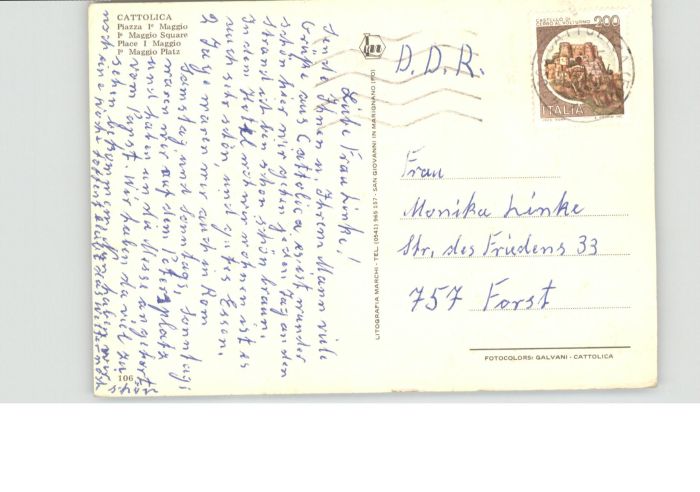 CATTOLICA
Piazza Iº Maggio
Iº Maggio Square
Place I Maggio
Iº Maggio Platz
106
Liebe Frau Linke!
Sende Ihnen u. Ihrem Mann viele
Grüße aus Cattolica es ist wunder
schön hier wir gehen jeden Tag an den
Strand ich bin schon schön braun,
In dem Hotel wo wir wohnen ist es
auch sehr schön, und gutes Essen,
2 Tage waren wir auch in Rom
Samstag und Sonntag, Sonntag
waren wir auf den Petersplatz
und haben uns die Messe angehört
vom Papst. Wir haben da viel zu
sehen bekommen
noch eine Woche
LITOGRAFIA MARCHI - TEL. (0541) 965 157 - SAN GIOVANNI IN MARIGNANO (FO)
D.D.R.
CASTELLO DI
CERRO AL VOLTURNO
200
ITALIA
Frau
Monika Linke
Str. des Friedens 33
757 Forst
FOTOCOLORS: GALVANI - CATTOLICA